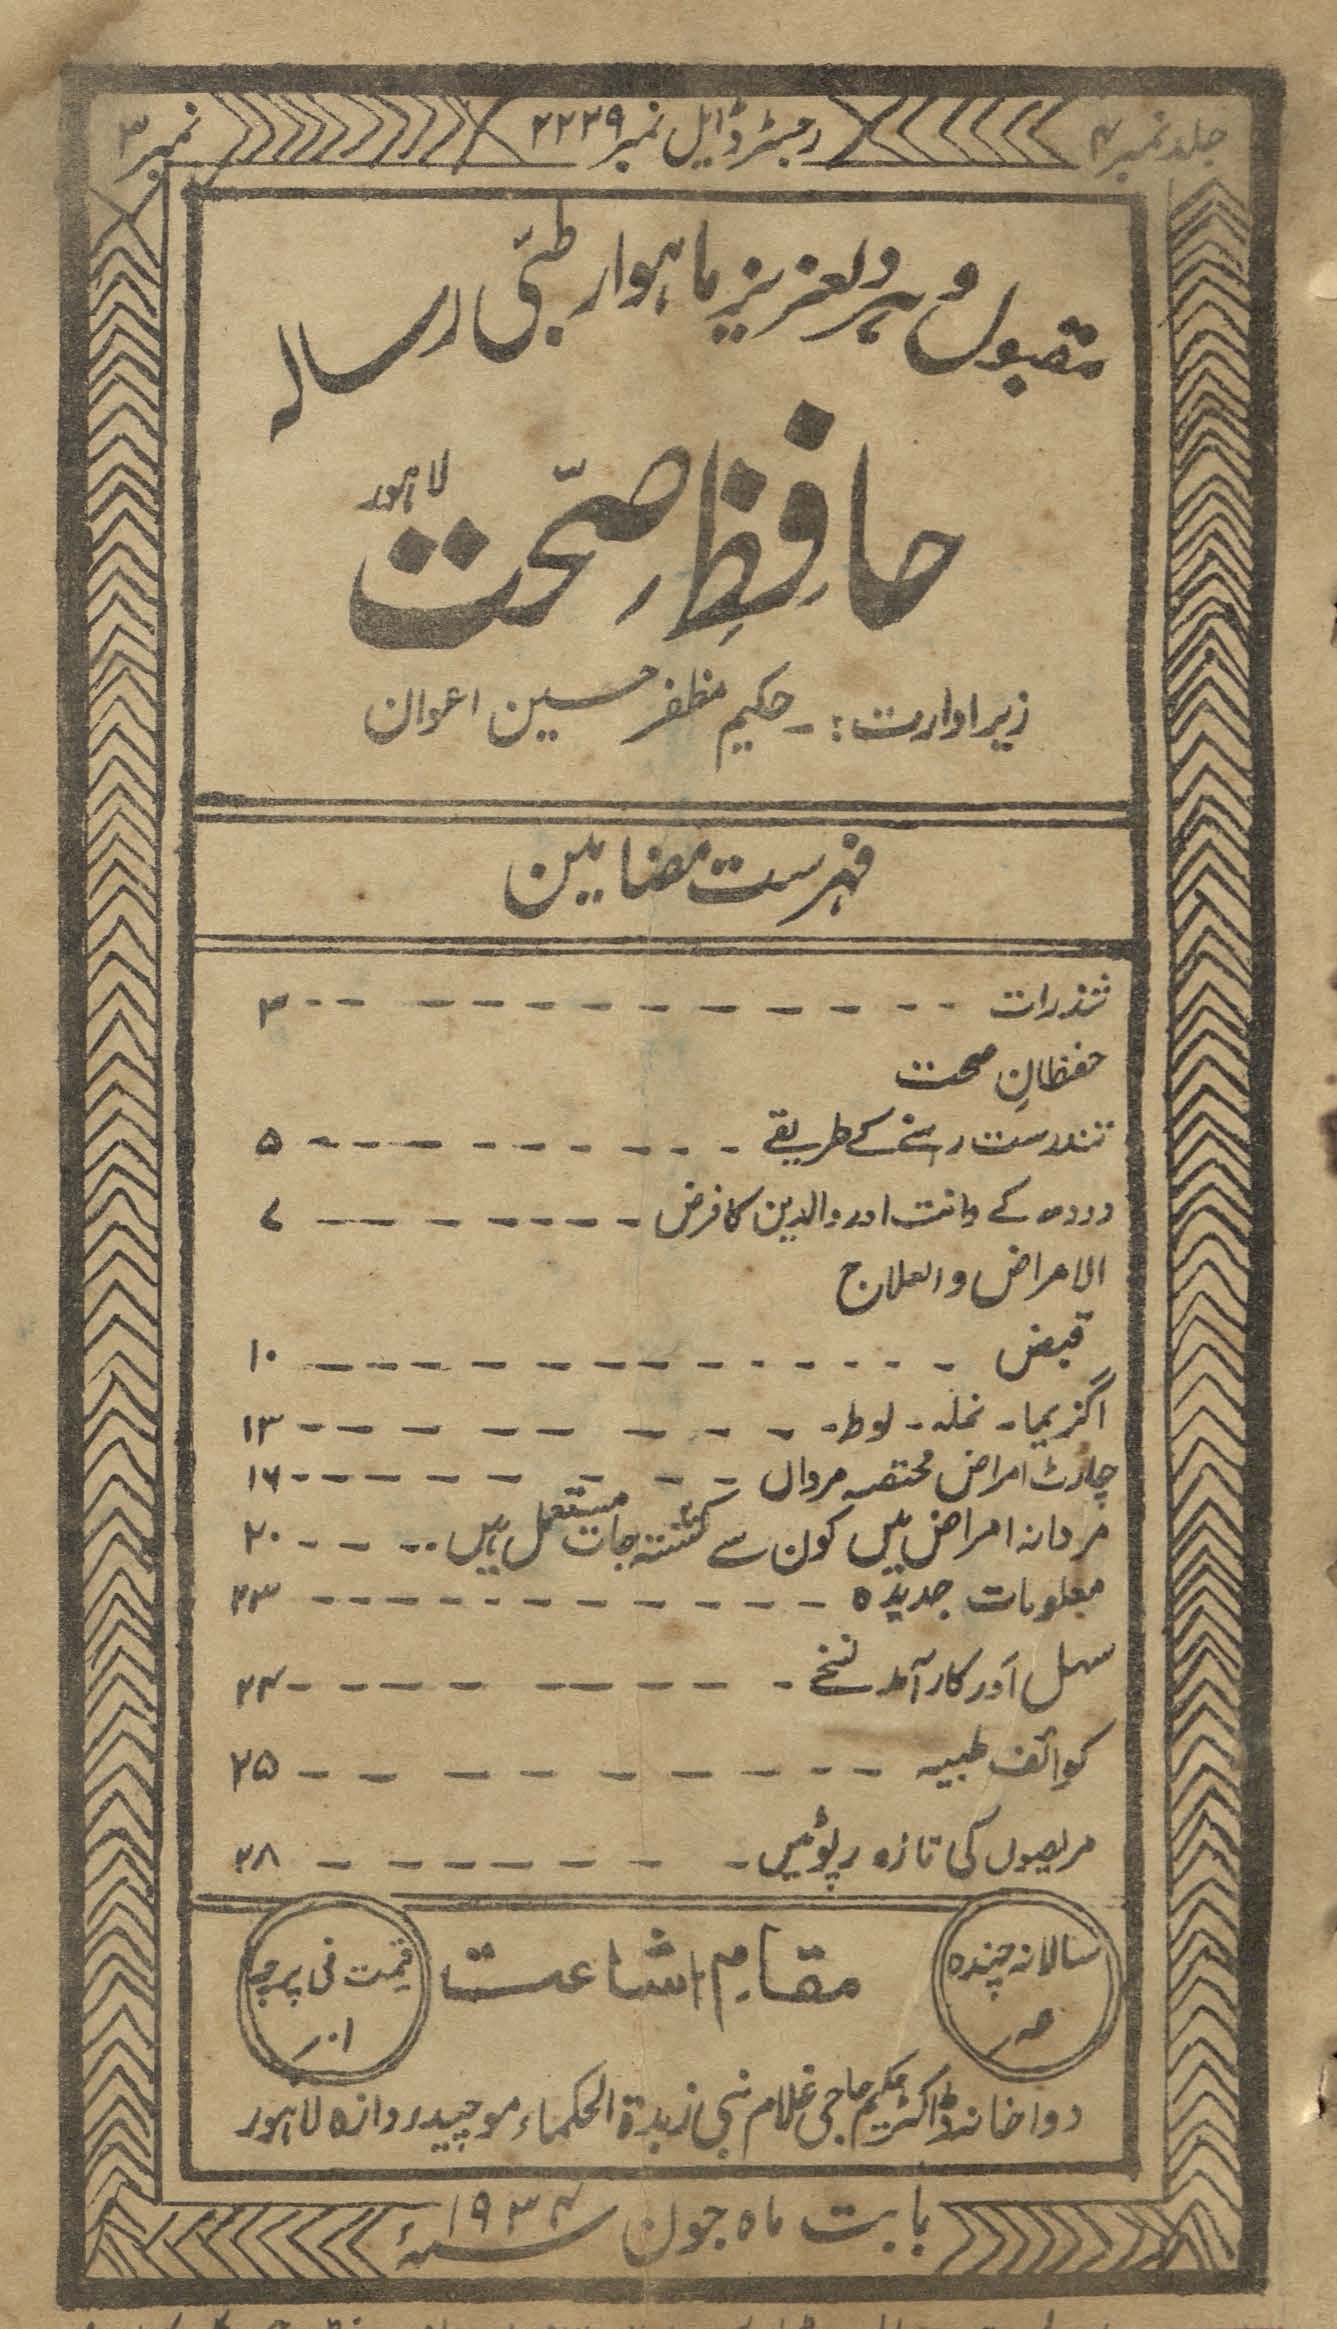 جلد نمبر ۴
رجسٹرڈ ایل نمبر ۲۲۳۹
نمبر ۳
مقبول و ہر دلعزیز ماہوار طبّی رسالہ
حافِظِ صحّت
لاہور
زیر ادارت :- حکیم مظفر حسین اعوان
فہرست مضامین
شذرات ۳
حفظانِ صحت
تندرست رہنے کے طریقے ۵
دودھ کے دانت اور والدین کا فرض ۷
الامراض والعلاج
قبض ۱۰
اگزیما - نملہ - لوط - ۱۳
چارٹ امراض مختصہ مرداں ۱۶
مردانہ امراض میں کون سے کشتہ جات مستعمل ہیں ۲۰
معلومات جدیدہ ۲۳
سہل اَور کارآمد نسخے ۲۴
کوائف طبیہ ۲۵
مریضوں کی تازہ رپوٹیں ۲۸
سالانہ چندہ
مقامِ اشاعت
قیمت فی پرچہ
۱۰ر
دواخانہ ڈاکٹر حکیم حاجی غلام نبی زبدۃ الحکماء موچیدروازہ لاہور
بابت ماہ جون سنہ ۱۹۳۴ء